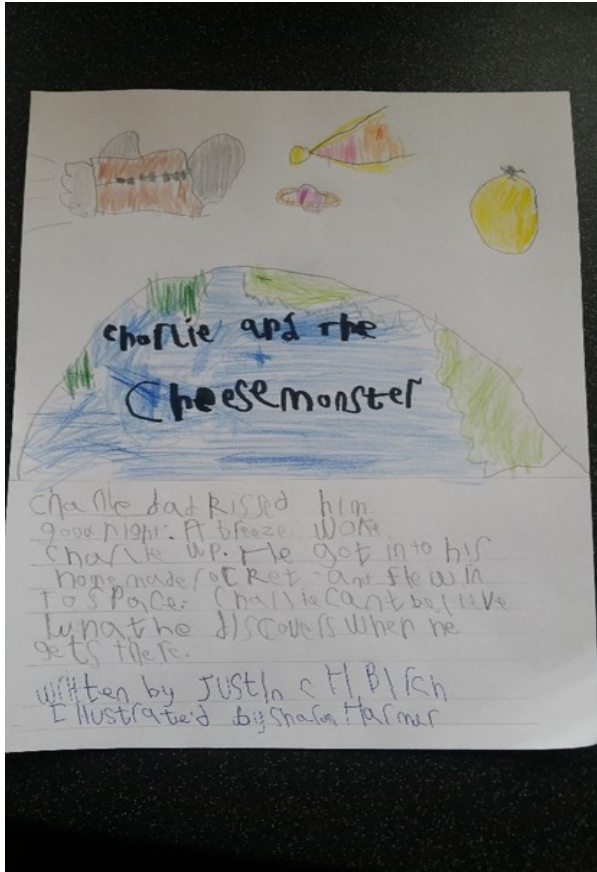 Charlie and the
Cheesemonster
Charlie dad kissed him
good night. A breeze woke
Charlie up. He got into his
homemade rocket and flew in
to space. Charlie cant belive
he discovers when he
gets there.
written by Justin C H Birch
Illustrated by Sharon Harmer